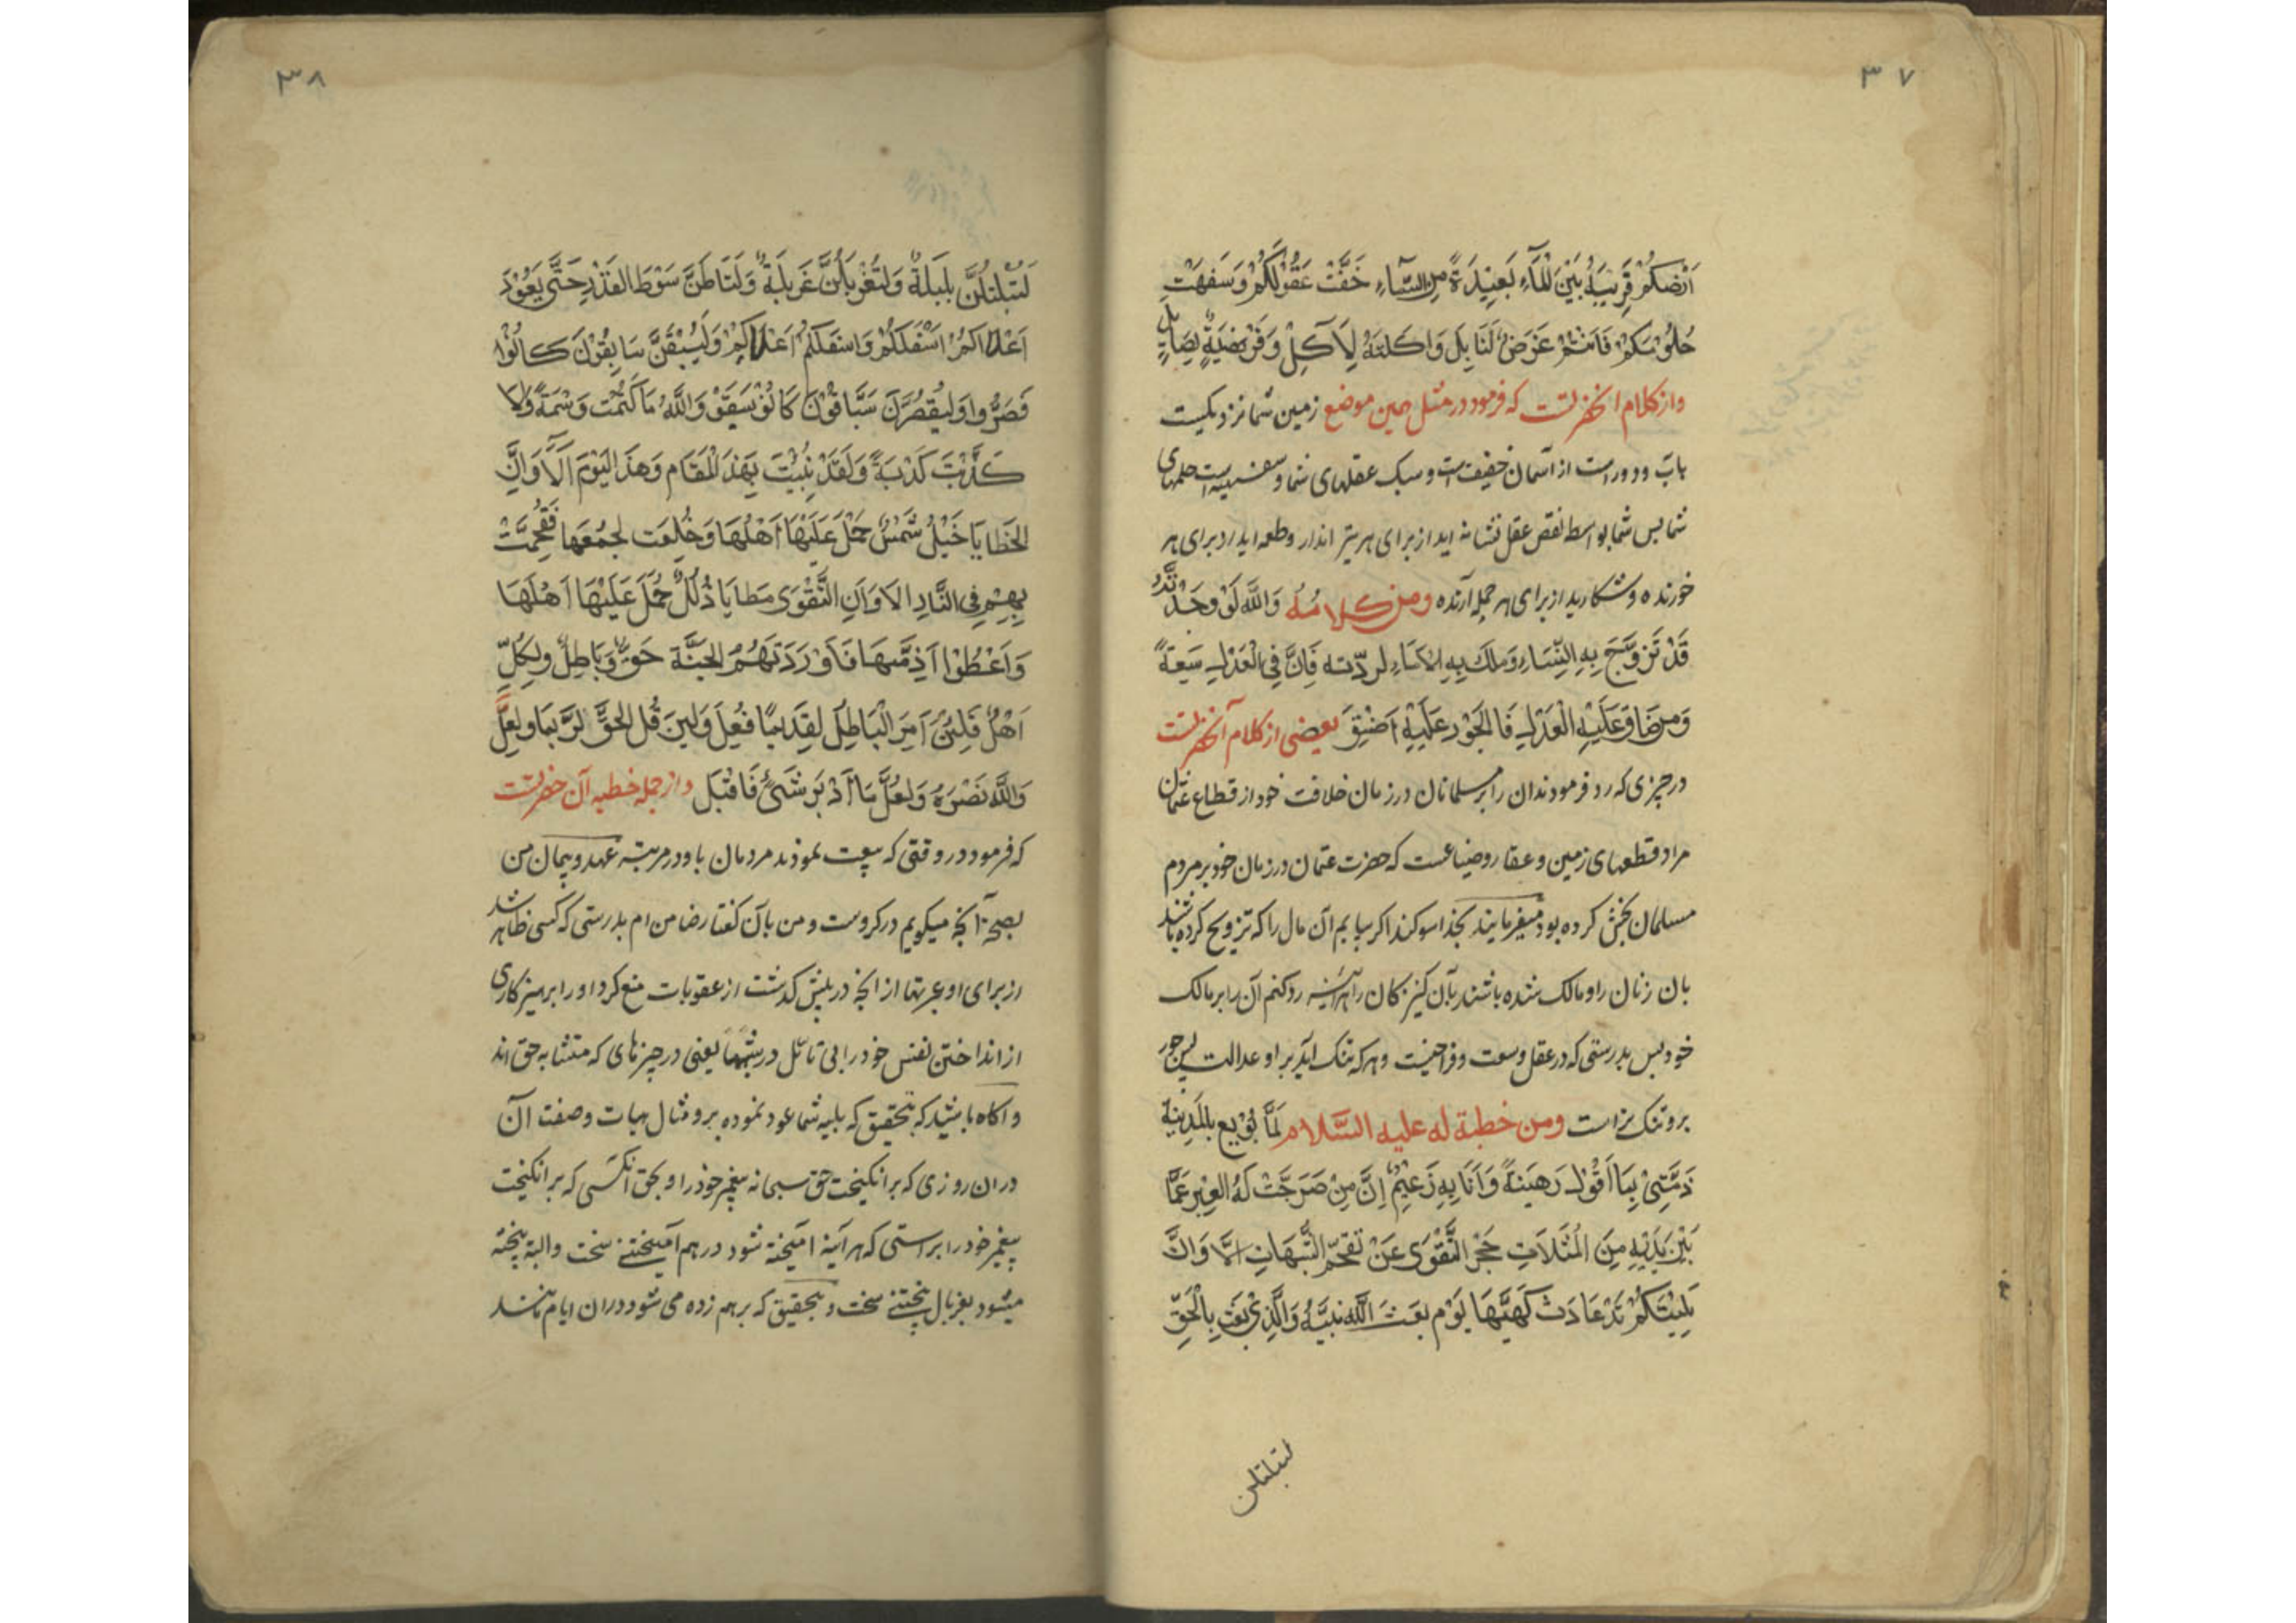 ۳۷
اَرْضُكُمْ قَرِيبَةٌ بَيْنَ الْمَآءِ بَعِيْدَةً مِنَ السَّمَآءِ خَفَّتْ عُقُوْلُكُمْ وَسَفِهَتْ
حُلُوْمُكُمْ فَاَنْتُمْ غَرَضٌ لَنَا بِلَ وَاكلتهُ لِآكِلٍ وَفَرِيْضَيةٌ لِصَايِلٍ
واز کلام انحضرتست که فرمود در مثل همین موضع زمین شما نزدیکیست
بآب و دوراست از آسمان خفیفت است و سبک عقلهای شما و سفیه است حلمهای
شما پس شما بواسطه نقص عقل نشانه اید از برای هر تیر انداز و طعمه اید از برای هر
خورنده و شکارید از برای هر حمله آرنده ومن كلامه وَاللَّهِ لَوْ وَجَدْتُهُ
قَدْ تَزَوَّجَ بِهِ النِّسَاءِ وَمَلَكَ بِهِ الاْمَاءِ لرددته فَاِنَّ فِي الْعَدْلِ سَعَةً
وَمَن ضَاقَ عَلَيْهِ الْعَدْلِ فَالْجَوْر عَلَيْهِ اَضْيَقَ بعضی از کلام آنحضرتست
در چیزی که رد فرمودند ان را بر مسلمانان در زمان خلافت خود از قطاع عثمان
مراد قطعهای زمین و عقار و ضیاعست که حضرت عثمان در زمان خود بر مردم
مسلمان بخش کرده بود میفرمایند بخدا سوکند اکر بیابم آن مال را که تزویج کرده باشند
بان زنان را و مالک شده باشند بآن کنیزکان را هر آینه رد کنم آن را بر مالک
خود پس بدرستی که در عقل وسعت و فراخیست و هر که تنک آید بر او عدالت پس جور
برو تنک تر است ومن خطبة له عليه السَّلام لَمَّا بُوْيِع بالْمَدِيْنَةِ
ذِمَّتِيْ بِمَا اَقُوْلُ رَهِيْنَةً وَاَنَا بِهِ زَعِيْمٌ اِنَّ مِنْ صَرَحَتْ لَهُ الْعِبَر عَمَّا
بَيْنَ يَدَيْهِ مِنَ الْمُثَلاَتِ حَجَزَ التَّقْوَى عَنْ تَقَحّم الشُّبَهَاتِ اَلَا وَاِنَّ
بَلِيَّتَكُمْ قَدْ عَادَتْ كَهَيْئَتِهَا يَوْم بَعَثَ اللَّه نَبِيَّهُ وَالَّذِيْ بَعَثَ بِالْحَقِّ
لتبلبلن
۳۸
لَتُبَلْبَلُنَّ بَلْبَلةً وَلَتُغَرْبَلُنَّ غَرْبَلَةً وَلَتُسَاطُنَّ سَوْطَ القِدْرِ حَتّٰى يَعُوْدَ
اَعْلَاكُمْ اَسْفَلَكُمْ وَاسفَلكُمْ اَعْلَاكُمْ وَلَيَسْبِقَنَّ سَابِقُوْنَ كَانُوْا
قَصَرُّوا وَلَيُقَصُرَّنَ سَبَّاقُوْنَ كَانُوْ سَبَقُوْ وَاللَّهِ مَا كَتَمْت وَشْمَةً وَلَا
كَذَّبْتَ كَذْبَةً وَلَقَدْ نُبِّيْتَ بِهَذَ الْمَقَام وَهَذَ الْيَوْمَ اَلَا وَاِنَّ
الخَطايَا خَيْلٌ شُمُسٌ حُمِلَ عَلَيْهَا اَهْلُهَا وَخُلِعَت لُجُمُهَا فَتَقَحَّمَتْ
بِهِمْ فِي النَّارِ اَلَا وَاِنَّ التَّقْوَى مَطَايَا ذُلُلٌ حُمِلَ عَلَيْهَا اَهْلُهَا
وَاَعْطُوْا اَزِمَّتَهَا فَاَوْرَدَتَهُمُ الجَنَّة حَقٌّ وَبَاطِلٌ ولِكُلِّ
اَهْلٌ فَلَئِنْ اَمِرَ الْبَاطِلَ لَقَدِيْمًا فُعِلَ وَلَئِنْ قُلَ الحَقُّ لَرُبَّمَا ولَعَلَّ
وَاللَّه نَصْرَهُ وَلَعَلَّ مَا اَدْبَر شَئٌ فَاقْبَلَ واز جمله خطبه آن حضرتست
که فرمود در وقتی که بیعت نمودند مردمان با و در مدینه عهد و پیمان من
بصحة آنچه میکویم در کروست و من بآن کفتار ضامن ام بدرستی که کسی ظاهر شد
از برای او عبرتها از انچه در پیش کذشت از عقوبات منع کرد او را پرهیزکاری
از انداختن نفس خود را بی تأمل در شبهها یعنی در چیزهای که متشابه حق اند
و اکاه باشید که بتحقیق که بلیه شما عود نموده بر و مثال هیات و صفت آن
در ان روزی که برانکیخت حق سبحانه پیغمبر خود را و بحق انکسی که برانکیخت
پیغمبر خود را براستی که هر آینه آمیخته شود در هم آمیختنی سخت و البته بیخته
میشود بغربال بیختنی سخت و بتحقیق که برهم زده می شود در ان ایام مانند